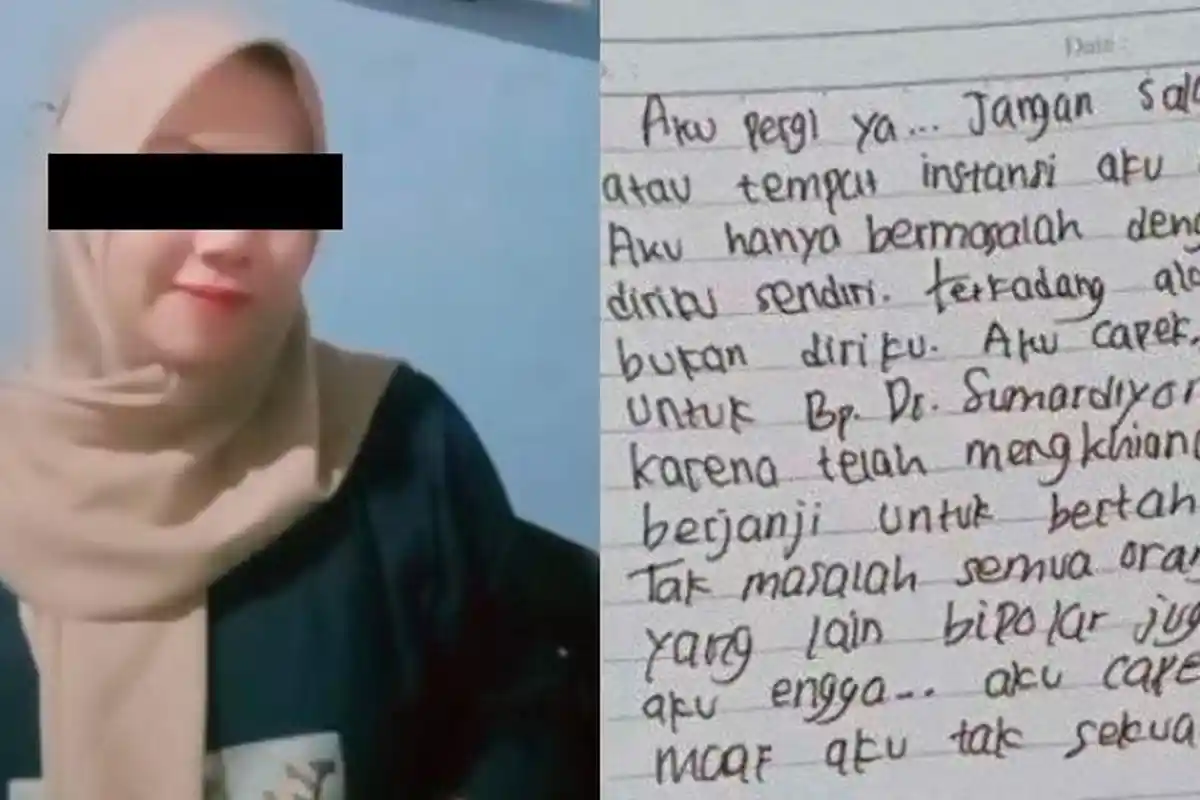 Date :
Aku pergi ya... Jangan sala
atau tempat instansi aku
Aku hanya bermasalah deng
diriku sendiri. terkadang ala
bukan diriku. Aku capek.
untuk Bp. Dr. Sumardiyon
karena telah mengkhiana
berjanji untuk bertah
Tak masalah semua oran
yang lain bipolar jug
aku engga... aku cape
maaf aku tak sekua